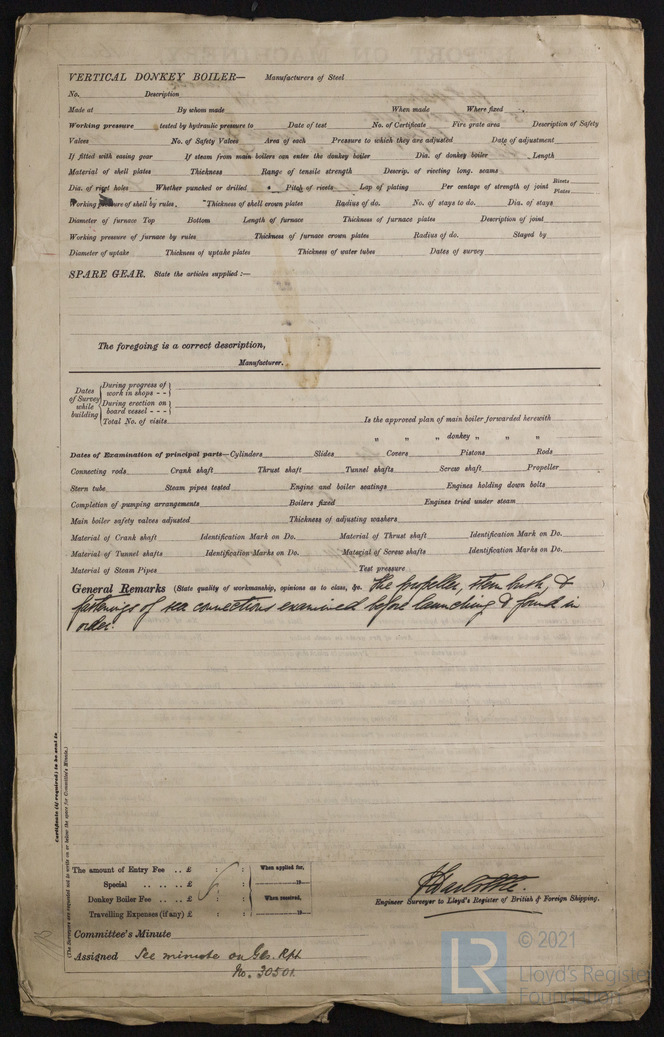 VERTICAL DONKEY BOILER— Manufacturers of Steel
No. Description
Made at By whom made When made Where fixed
Working pressure tested by hydraulic pressure to Date of test No. of Certificate Fire grate area Description of Safety
Valves No. of Safety Valves Area of each Pressure to which they are adjusted Date of adjustment
If fitted with easing gear If steam from main boilers can enter the donkey boiler Dia. of donkey boiler Length
Material of shell plates Thickness Range of tensile strength Descrip. of riveting long. seams
Dia. of rivet holes Whether punched or drilled Pitch of rivets Lap of plating Per centage of strength of joint Rivets Plates
Working pressure of shell by rules Thickness of shell crown plates Radius of do. No. of stays to do. Dia. of stays
Diameter of furnace Top Bottom Length of furnace Thickness of furnace plates Description of joint
Working pressure of furnace by rules Thickness of furnace crown plates Radius of do. Stayed by
Diameter of uptake Thickness of uptake plates Thickness of water tubes Dates of survey
SPARE GEAR. State the articles supplied :—
The foregoing is a correct description,
Manufacturer.
Dates of Survey while building
During progress of work in shops - -
During erection on board vessel - - -
Total No. of visits
Is the approved plan of main boiler forwarded herewith
" " " donkey " " "
Dates of Examination of principal parts—Cylinders Slides Covers Pistons Rods
Connecting rods Crank shaft Thrust shaft Tunnel shafts Screw shaft Propeller
Stern tube Steam pipes tested Engine and boiler seatings Engines holding down bolts
Completion of pumping arrangements Boilers fixed Engines tried under steam
Main boiler safety valves adjusted Thickness of adjusting washers
Material of Crank shaft Identification Mark on Do. Material of Thrust shaft Identification Mark on Do.
Material of Tunnel shafts Identification Marks on Do. Material of Screw shafts Identification Marks on Do.
Material of Steam Pipes Test pressure
General Remarks (State quality of workmanship, opinions as to class, &c. The propeller, stern bush, &
fastenings of sea connections examined before launching & found in
order.
Certificate (if required) to be sent to
(The Surveyors are requested not to write on or below the space for Committee's Minute.)
The amount of Entry Fee .. £ : : When applied for,
Special .. .. .. £ : : 19
Donkey Boiler Fee .. .. £ : : When received,
Travelling Expenses (if any) £ : : 19
Engineer Surveyor to Lloyd's Register of British & Foreign Shipping.
Committee's Minute
Assigned See minute on Gls. Rpt
No. 30501.
LR
© 2021
Lloyd's Register
Foundation